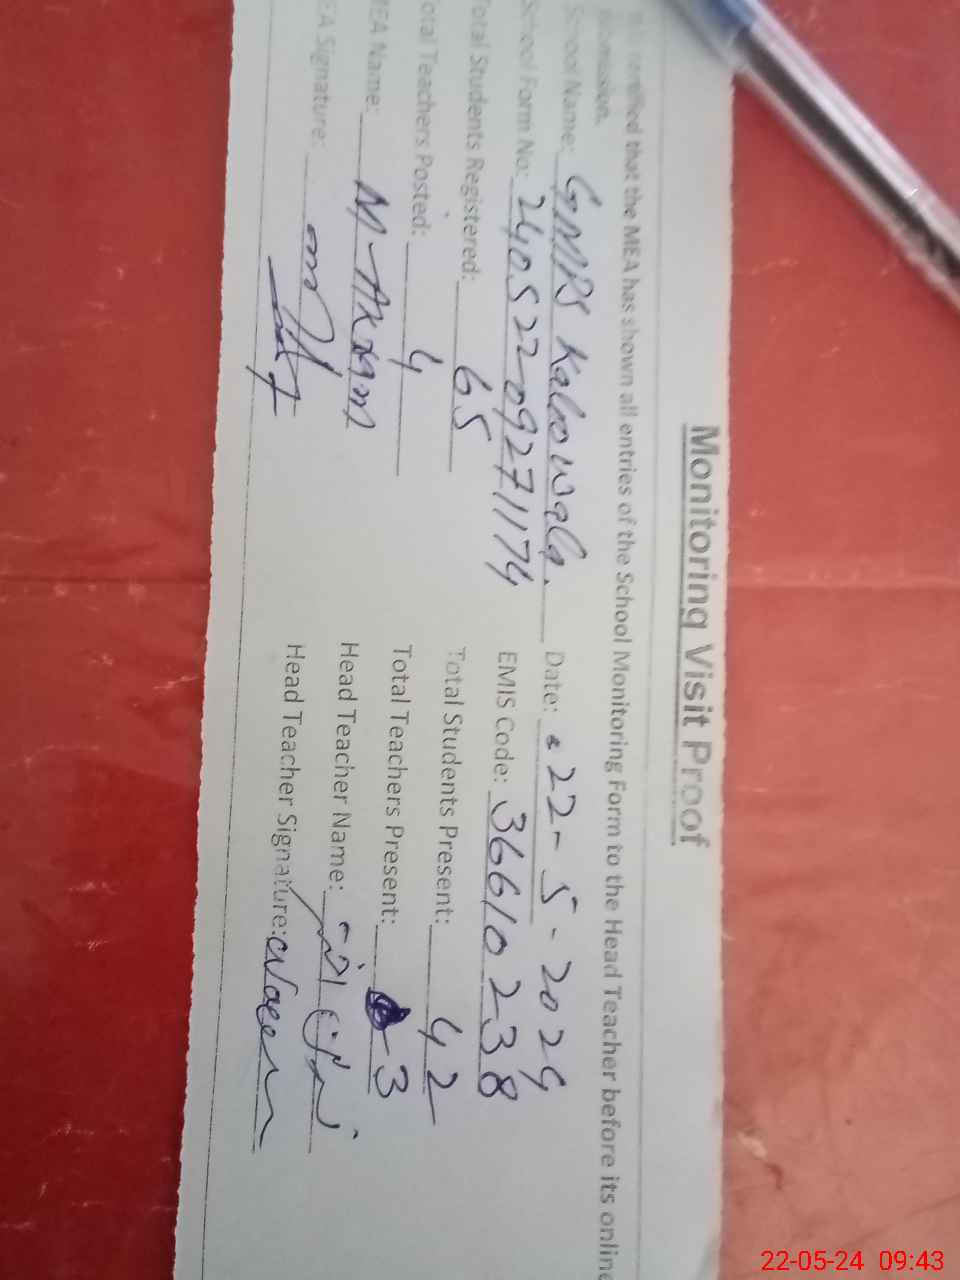 Monitoring Visit Proof
certified that the MEA has shown all entries of the School Monitoring Form to the Head Teacher before its online
School Name: GMPS Kaloowala. Date: 22-5-2024
School Form No: 240522-09271174 EMIS Code: 36610238
Total Students Registered: 65 Total Students Present: 42
Total Teachers Posted: 4 Total Teachers Present: 3
MEA Name: M-Akram Head Teacher Name:
EA Signature: Head Teacher Signature:
22-05-24 09:43